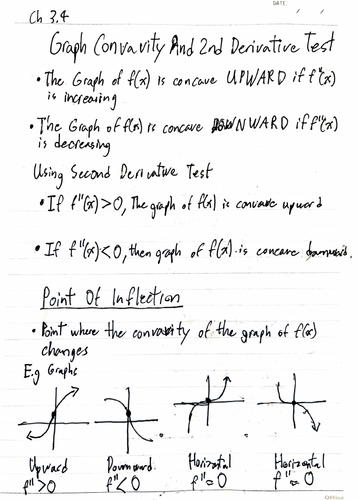 DATE
Ch 3.4
Graph Convavity And 2nd Derivative Test
• The Graph of f(x) is concave UPWARD if f"(x)
is increasing
• The Graph of f(x) is concave DOWNWARD if f"(x)
is decreasing
Using Second Derivative Test
• If f"(x) > 0, The graph of f(x) is convave upward
• If f"(x) < 0, then graph of f(x) is concave downward.
Point Of Inflection
• Point where the convavity of the graph of f(x)
changes
E.g Graphs
Upward Downward Horizontal Horizontal
f" > 0 f" < 0 f" = 0 f" = 0
Office